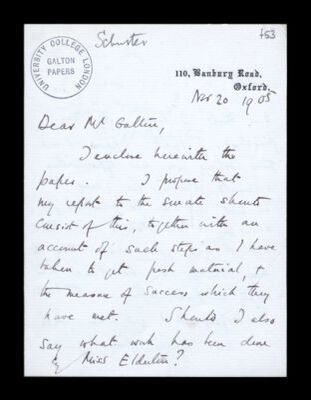 Schuster
f53
UNIVERSITY COLLEGE LONDON
GALTON
PAPERS
110, Banbury Road,
Oxford.
Nov 20 1905
Dear Mr Galton,
I enclose herewith the
paper. I propose that
my report to the senate should
consist of this, together with an
account of such steps as I have
taken to get fresh material, &
the measure of success which they
have met. Should I also
say what work has been done
by Miss Elderton?